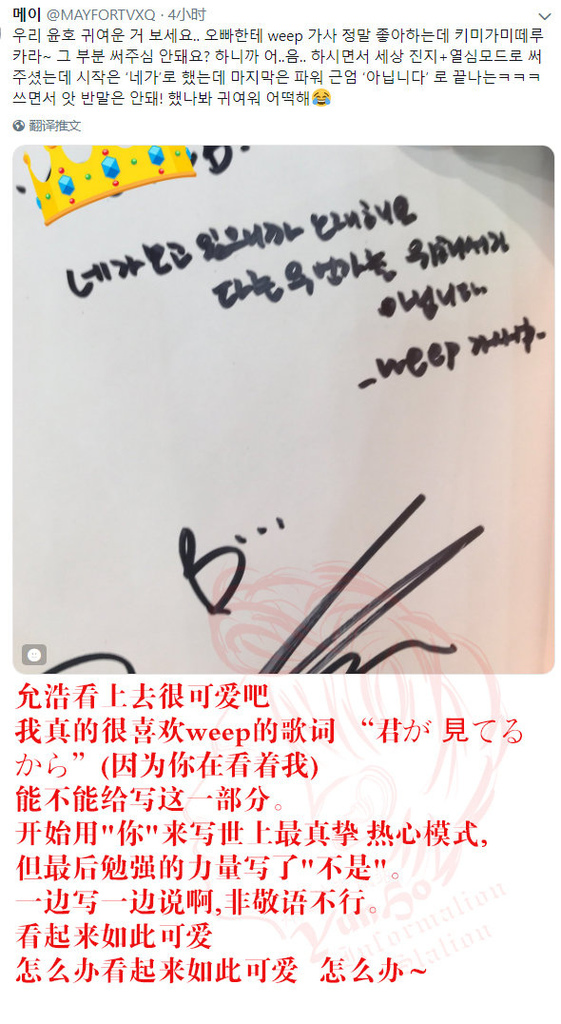 메이 @MAYFORTVXQ · 4小时
우리 윤호 귀여운 거 보세요.. 오빠한테 weep 가사 정말 좋아하는데 키미가미떼루
카라~ 그 부분 써주심 안돼요? 하니까 어..음.. 하시면서 세상 진지+열심모드로 써
주셨는데 시작은 ‘네가’로 했는데 마지막은 파워 근엄 ‘아닙니다’ 로 끝나는ㅋㅋㅋ
쓰면서 앗 반말은 안돼! 했나봐 귀여워 어떡해😂
翻译推文
네가 보고 있으니까 노래해요
다른 누언가를 위해서가
아닙니다
_weep 가사中_
B...
允浩看上去很可爱吧
我真的很喜欢weep的歌词 “君が 見てる
から”(因为你在看着我)
能不能给写这一部分。
开始用"你"来写世上最真挚 热心模式,
但最后勉强的力量写了"不是"。
一边写一边说啊,非敬语不行。
看起来如此可爱
怎么办看起来如此可爱 怎么办~
YunHo
Information